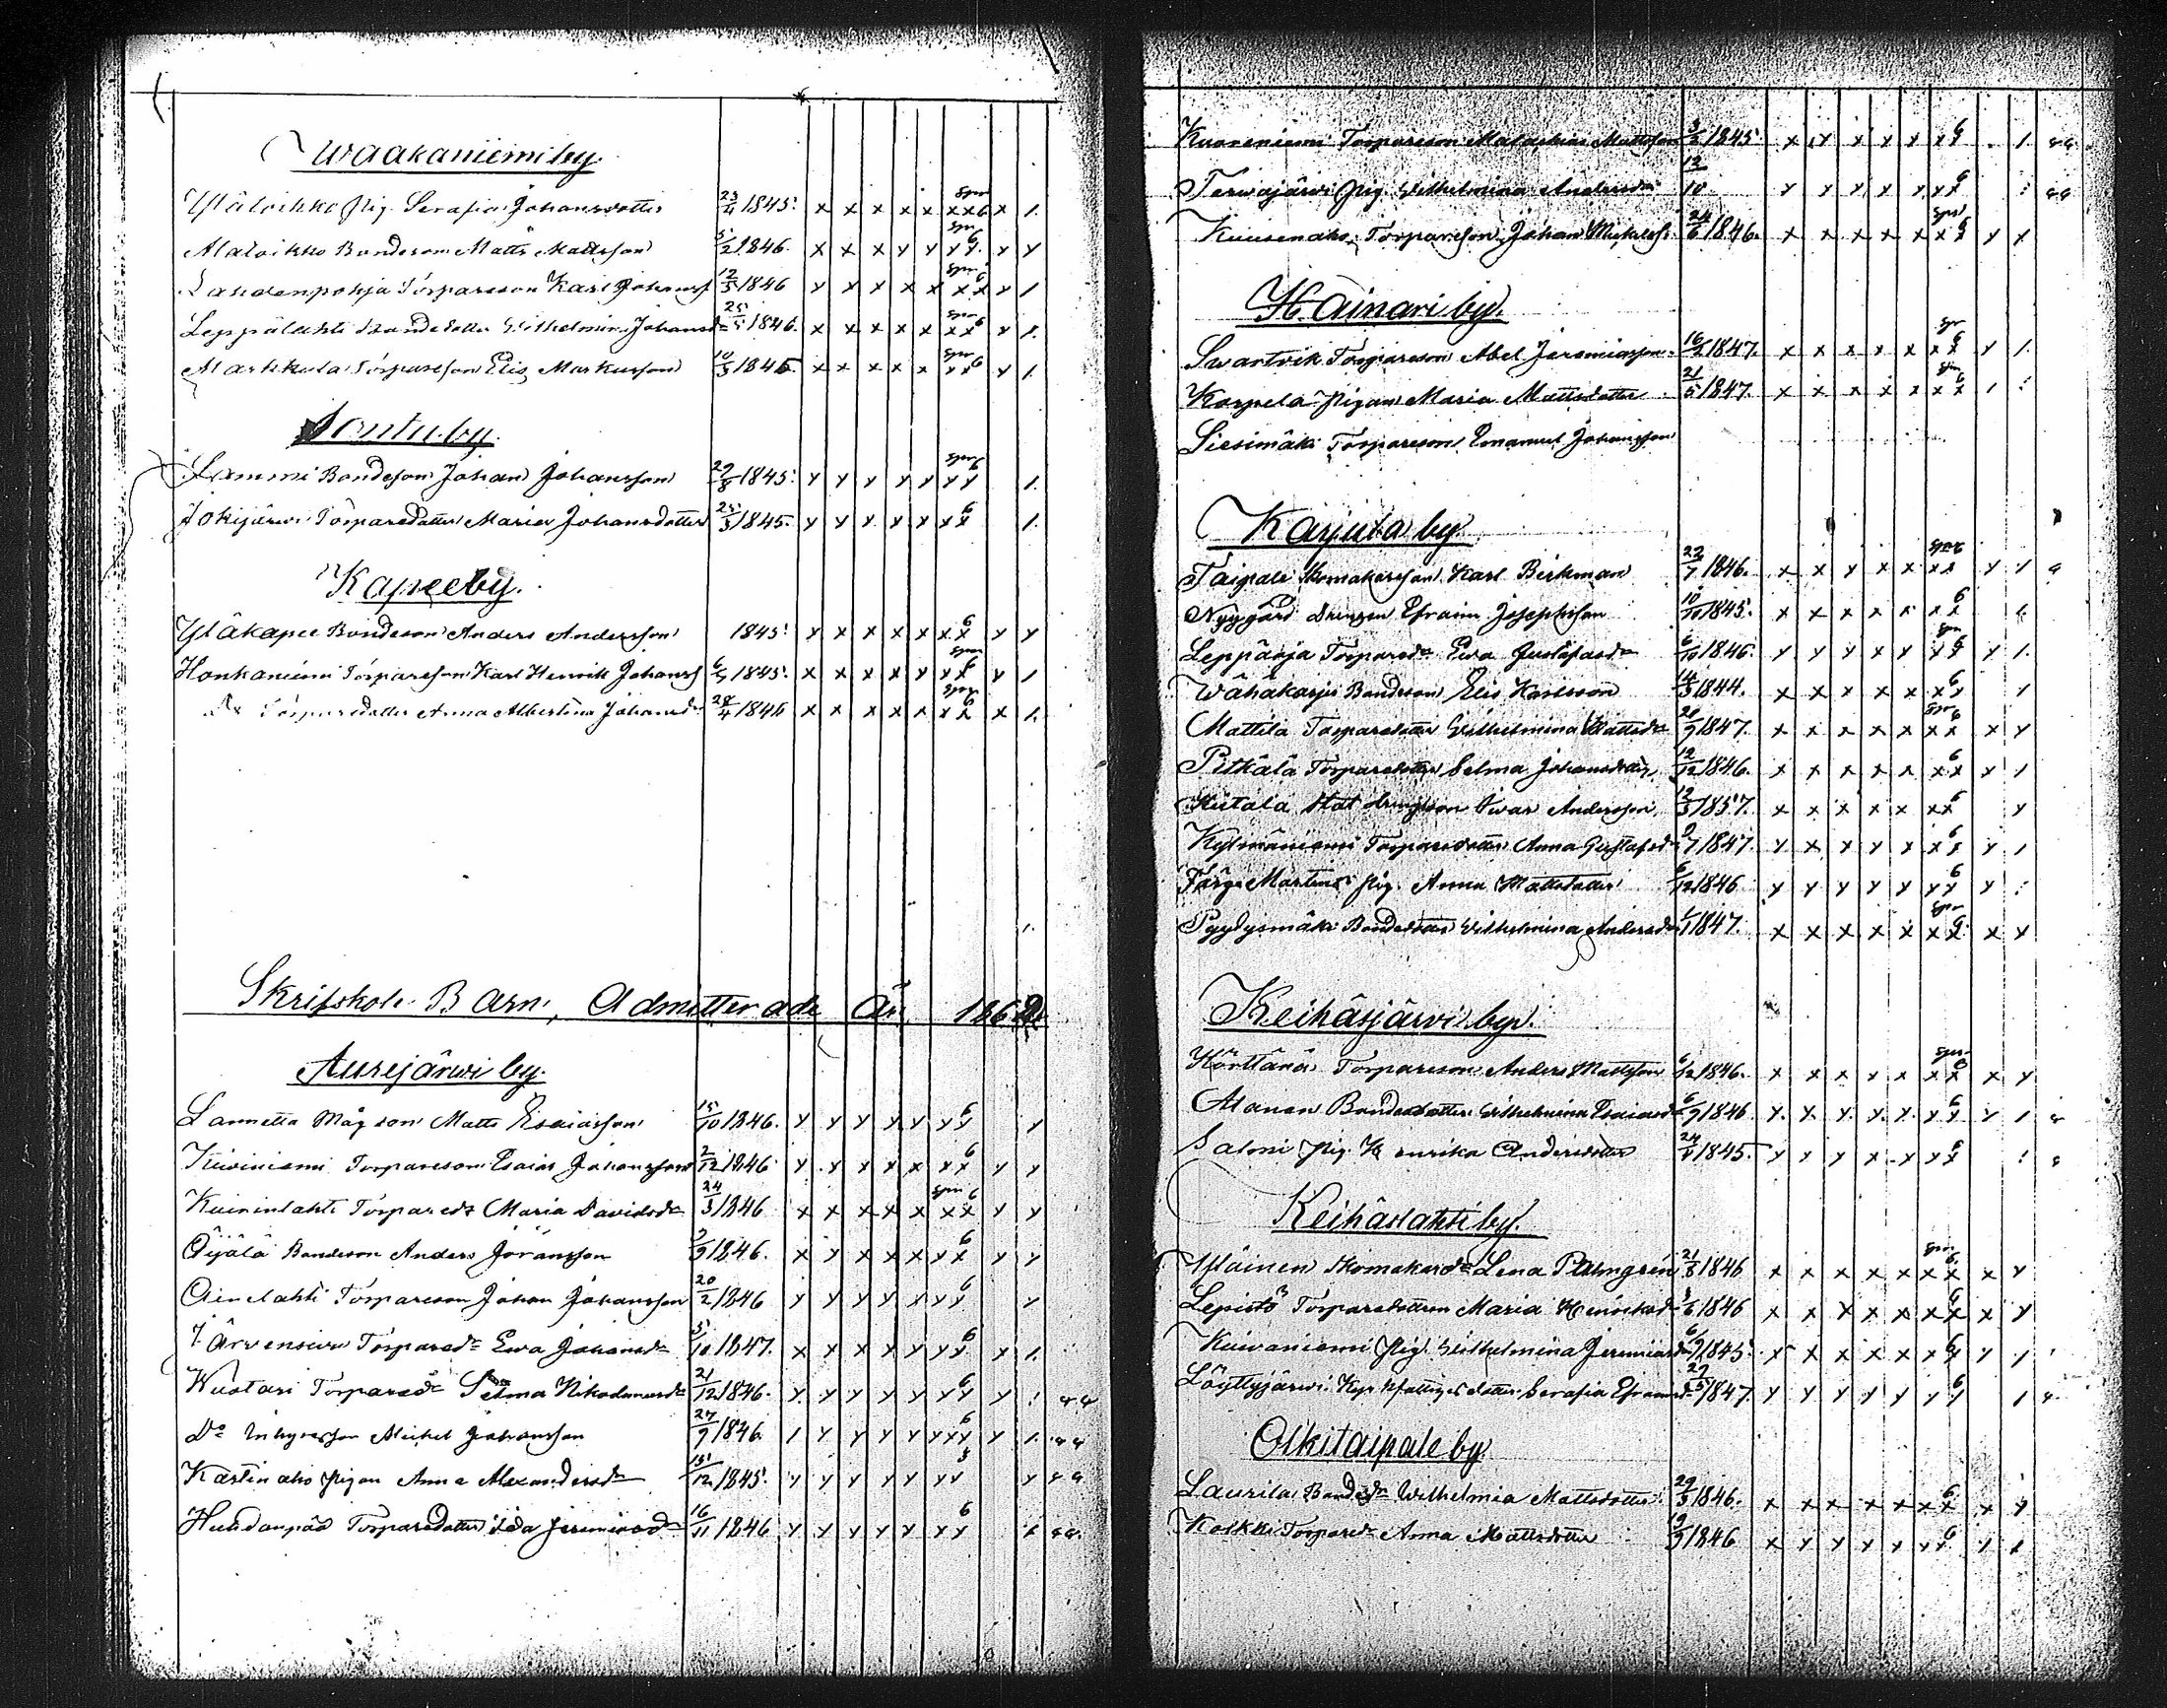 Waakaniemi by
Yläloikko Pig. Serafia Johansdotter 23/4 1845. x x x x x xx6 x 1.
Alaloikko Bondeson Matts Mattsson 5/2 1846. x x x y y yy6 y y
Lahdenpohja Torpareson Karl Johanss 12/3 1846 y x x x x xx6 y 1
Leppälahti Bondedotter Wilhelmina Johansdr 25/5 1846. x x x x x xx6 y 1.
Markkula Torpareson Elis Markusson 10/3 1845. x x x x x xx6 y 1.
Pentu by.
Lammi Bondeson Johan Johansson 29/8 1845. y y y y y yy6 1.
Jokijärwi Torparedotter Maria Johansdotter 25/3 1845. y y y y y xx6 1.
Kapee by.
Yläkapee Bondeson Anders Andersson 1845. y x x x x xx6 y y
Honkaniemi Torpareson Karl Henrik Johanss 6/4 1845. x x x x y xx6 y 1
Do Torparedotter Anna Albertina Johansdr 28/4 1846 x x x x x xx6 x 1.
Skrifskole Barn, Admitterade År 1862.
Aurejärwi by.
Lannetta Mågson Matts Esaiasson 15/10 1846. y y y y y yy6 y
Kiviniemi Torpareson Esaias Johansson 2/12 1846 y y x x x xx6 y y
Kuivinlahti Torparedr Maria Davidsdr 24/3 1846 x x x x x xx6 y y
Öijälä Bondeson Anders Jöransson 3/9 1846. x y x x x xx6 y y
Ainelahti Torpareson Johan Johansson 20/2 1846 y y y y y yy6 y
Järvensivu Torparedr Ewa Johansdr 5/10 1847. x x x x x yy6 y 1.
Kuotari Torparedr Selma Nikodemusdr 21/12 1846. y y y y y yy6 y
Do Inhysesson Mickel Johansson 27/9 1846. 1 y y y y yy6 y 1.
Kastinaho Pigan Anna Alexandersdr 15/12 1845. y y y y y yy5 y
Huhdanpää Torparedotter Ida Jeremiasdr 16/11 1846 y y y y y yy6 x
Kuoreniemi Torpareson Malakias Mattsson 3/2 1845. x y x x x x6 1
Terwajärwi Pig. Wilhelmina Andersdr 12/10 y y y y y yy6
Kuusenaho Torpareson Johan Mickelss. 24/6 1846. x x x x x xx6 y y
Hainari by.
Swartvik Torpareson Abel Jeremiasson. 16/2 1847. x x x x x xx6 y 1.
Karpela Pigan Maria Mattsdotter 21/5 1847. x x x x x xx6 1
Siesimäki Torpareson Emanuel Johansson
Karjula by.
Taipale Skomakareson Karl Birkman 22/7 1846. x x y x x xx y y
Nygård Drengen Efraim Josephsson 10/10 1845. x x x x x xx6
Leppäoja Torparedr Ewa Gustafsdr 6/10 1846. y y y x y yy6 y 1.
Wähäkarju Bondeson Elis Karlsson 14/3 1844. x x x x x xy6 y
Mattila Torparedotter Wilhelmina Mattsdr 20/9 1847. x x x x x xx6 x y
Pitkälä Torparedotter Selma Johansdotter 12/12 1846. x x x x x xx6 x 1
Kiitala Statdrengson Iwar Andersson 12/3 1857. x x x x x xx6 y
Kylmäniemi Torparedotter Anna Gustafsdr 2/7 1847. y x y y x xx6 y 1
Färge Martins Pig. Anna Mattsdotter 5/12 1846 y y y y y yy6 y
Pyydysmäki Bondedotter Wilhelmina Andersdr 1/1 1847. x x x x x xx6 x y
Keihäsjärwi by.
Hörttänä Torpareson Anders Mattsson 6/12 1846. x x x x x xx x y
Alanen Bondedotter Wilhelmina Esaiasdr 6/9 1846 y y y y y yy6 y 1
Salmi Pig. Henrika Andersdotter 24/9 1845. y y y x y yy6
Keihäslahti by.
Yläinen Skomakaredr Lena Palmgren 21/8 1846 x x x x x xx6 x y
Lepistö Torparedottren Maria Henriksdr 1/6 1846 x x x x x xx6 x y
Kuivaniemi Pig. Wilhelmina Jeremiasdr 6/9 1845. x x x x x x6 y 1
Löyttyjärwi Kyrkfattiges dotter Serafia Efraimsdr 27/5 1847 y y y y y y6 1
Olkitaipale by
Laurila Bondedr Wilhelmia Mattsdotter. 29/3 1846. x x x x x xx6 x y
Kolkki Torparedr Anna Mattsdotter 19/3 1846 x y y y y yy6 1 x